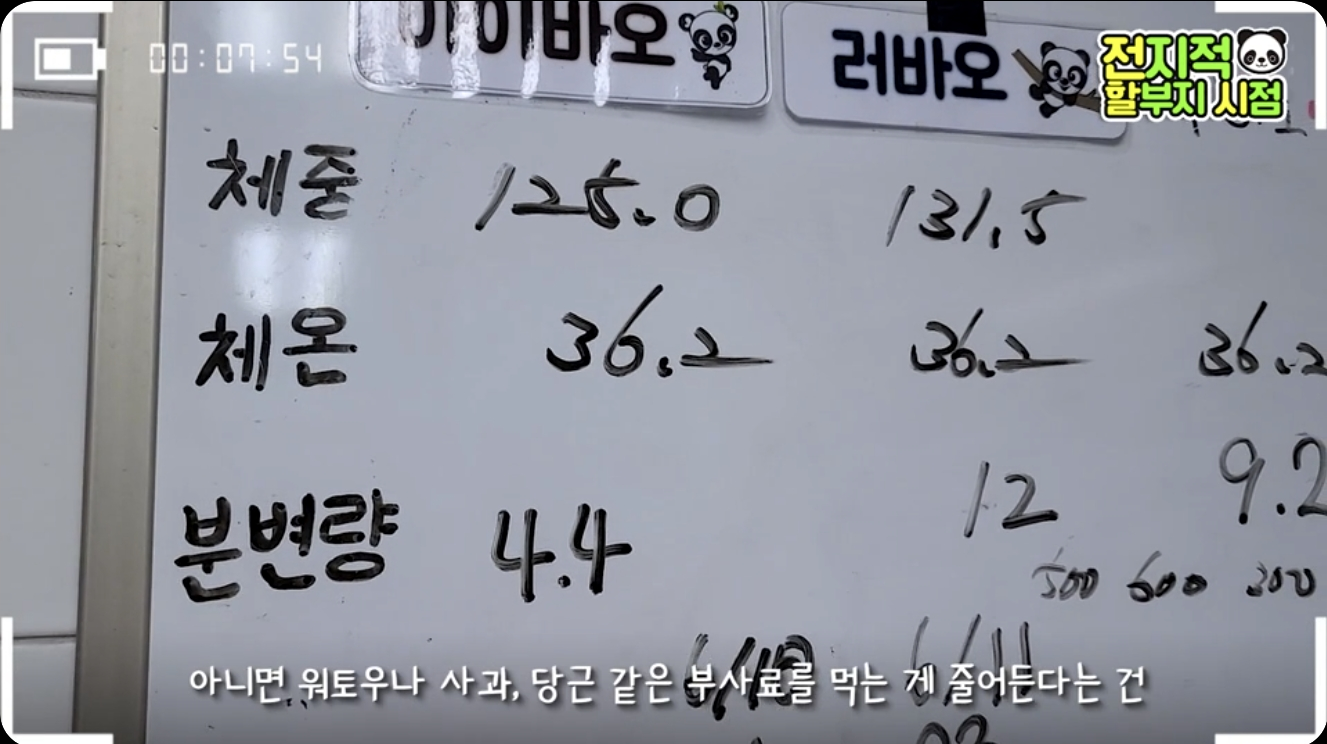 00:07:54
아이바오 러바오
전지적
할부지 시점
체중 125.0 131.5
체온 36.2 36.2 36.2
분변량 4.4 12 9.2
500 600 300
6/10 6/11
아니면 워토우나 사과, 당근 같은 부사료를 먹는 게 줄어든다는 건